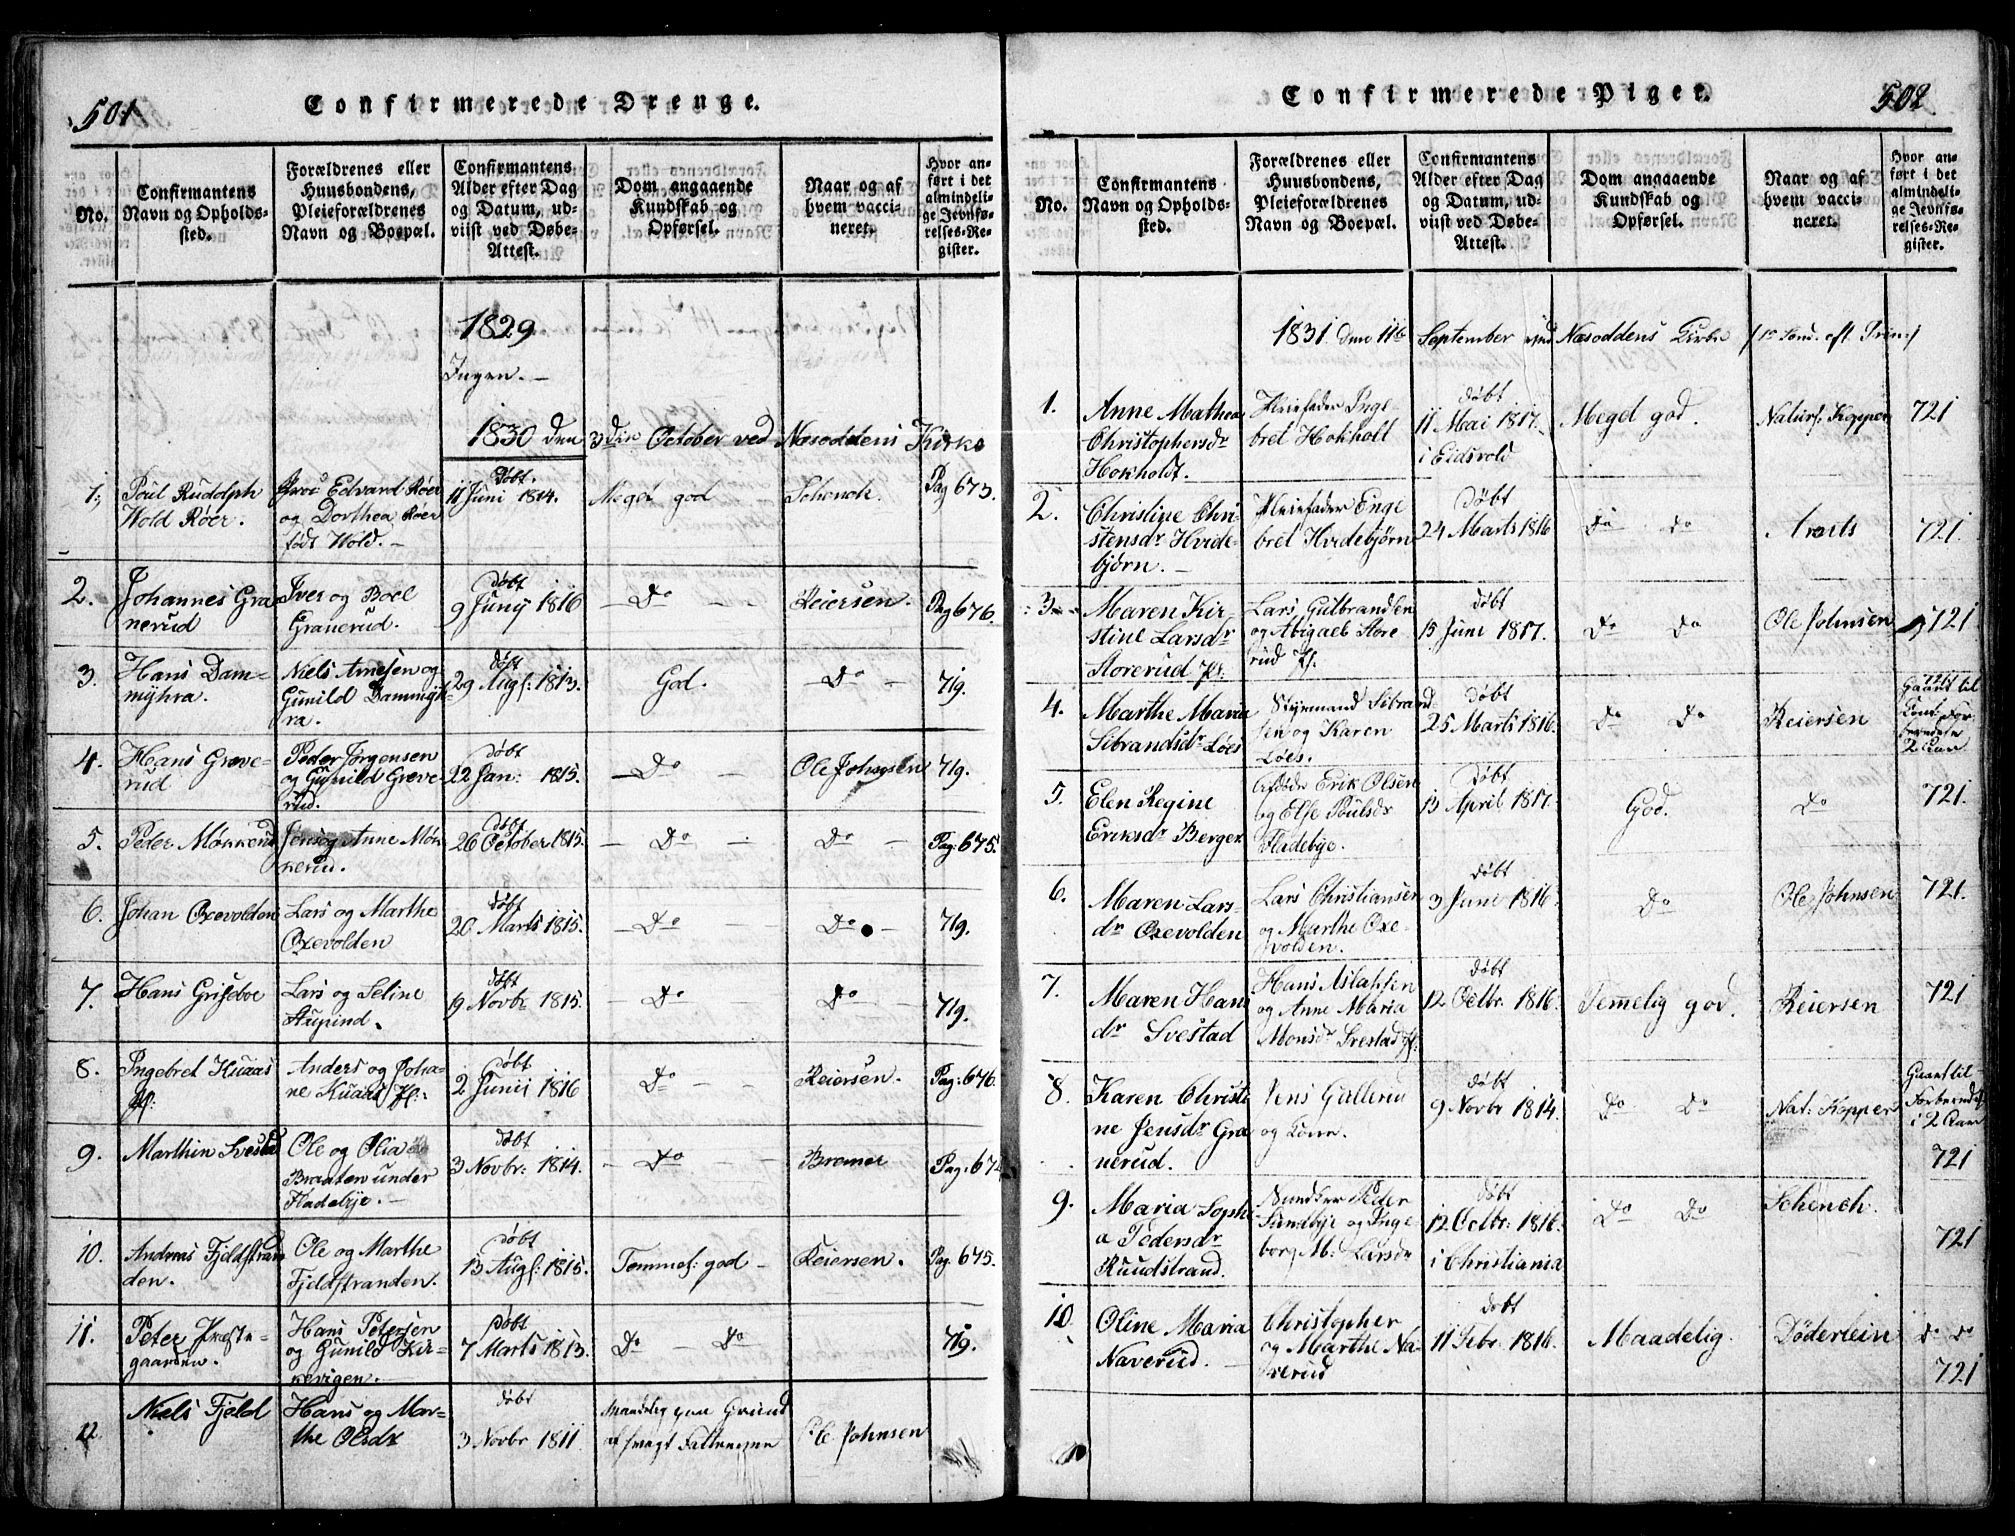 501
Confirmerede Drenge.
No.
Confirmantens
Navn og Opholds-
sted.
Forældrenes eller
Huusbondens,
Pleieforældrenes
Navn og Boepæl.
Confirmantens
Alder efter Dag
og Datum, ud-
viist ved Døbe-
Attest.
Dom angaaende
Kundskab og
Opførsel.
Naar og af
hvem vacci-
neret.
Hvor an-
ført i det
almindeli-
ge Jevnfø-
relses-Re-
gister.
1829
Ingen.
1830 den 3die October ved Næsoddens Kirke
1. Poul Rudolph
Wold Røer.
Edvard Røer
og Dorthea Røer
født Wold.
døbt
11 Juni 1814.
Meget god
Schenck.
Pag 673.
2. Johannes Gra
nerud
Iver og Boel
Granerud.
døbt
9 Junij 1816
Do
Reiersen.
Pag 676.
3. Hans Dam-
myhra.
Niels Arnesen og
Gunild Dammyh-
ra.
døbt
29 Augs: 1813.
God.
Do
719.
4. Hans Greve-
rud
Peder Jørgensen
og Gunild Greve-
rud.
døbt
22 Jan: 1815.
Do
Ole Johnsen
719.
5. Peder Mokkerud
Jens og Anne Mok-
kerud.
døbt
26 October 1815.
Do
Do
Pag: 675.
6. Johan Oxevolden
Lars og Marthe
Oxevolden
døbt
20 Marts 1815.
Do
Do
719.
7. Hans Griseboe
Lars og Seline
døbt
19 Novbr 1815.
Do
Do
719.
8. Ingebret Kuaas
Pl:
Anders og Joha-
ne Kuaas Pl:
døbt
2 Junii 1816
Do
Reiersen.
Pag: 676.
9. Marthin Svestad
Ole og Olia
Braaten under
Fladebye.
døbt
3 Novbr: 1814.
Do
Bremer
10. Andreas Fjeldstran
den.
Ole og Marthe
Fjeldstranden.
døbt
13 Augs: 1815.
Temmel: god
Reiersen.
Pag. 675.
11. Peter Præste-
gaarden.
Hans Petersen
og Gunild Kir-
kevigen.
døbt
7 Marts 1813.
Do Do
719.
12 Niels Fjeld
Hans og Mar-
the Olsdr
døbt
3 Novbr 1811.
Ole Johnsen
Confirmerede Piger.
502
No.
Confirmantens
Navn og Opholds-
sted.
Forældrenes eller
Huusbondens,
Pleieforældrenes
Navn og Boepæl.
Confirmantens
Alder efter Dag
og Datum, ud-
viist ved Døbe-
Attest.
Dom angaaende
Kundskab og
Opførsel.
Naar og af
hvem vacci-
neret.
Hvor an-
ført i det
almindeli-
ge Jevnfø-
relses-Re-
gister.
1831 den 11te September ved Næsoddens Kirke
1. Anne Mathea
Christophersdr
Hokholdt.
Pleiefader Inge-
bret Hokholt
døbt
11 Mai 1817.
i Eidsvold
Meget god.
Naturl: Kopper
721
2. Christine Chri-
stensdr Hvide-
bjørn.
Pleiefader Enge
bret Hvidebjørn
døbt
24 Marts 1816
Do Do
721.
3. Maren Kir-
stine Larsdr
Storerud Pl:
Lars Gulbrandsen
og Abigael Store
rud Pl.
døbt
15 Juni 1817.
Do Do
Ole Johnsen
721.
4. Marthe Maria
Sibrandsdr Løes
Styrmand Sibrand
sen og Karen
Løes.
døbt
25 Marts 1816.
Do Do
Reiersen
721
Gaaet til
2 Aar
5. Elen Regine
Eriksdr Berger
Afdøde Erik Olsen
og Else Poulsdr
Fladebye.
døbt
13 April 1817.
God.
Do
721.
6. Maren Lars-
dr Oxevolden
Lars Christiansen
og Marthe Oxe-
volden.
døbt
3 Juni 1816.
Do
Ole Johnsen
721.
7. Maren Hans
dr Svestad
Hans Aslaksen
og Anne Maria
Monsdr Svestad Pl:
døbt
12 Octbr. 1816.
Temelig god.
Reiersen
721
8. Karen Christi
ne Jensdr Gra
nerud.
Jens Gullerud
og Kone.
døbt
9 Novbr 1814.
Do Do
Nat: Kopper
Gaaet til
Forberedelse
i 2 Aar
721
9. Maria Sophi
a Pedersdr
Ruudstrand.
Peder
Sundbye og Inge
borg M: Larsdr
døbt
12 Octbr: 1816.
i Christiania
Do Do
Schench.
721
10 Oline Maria
Naverud.
Christopher
og Marthe Na-
verud
døbt
11 Febr: 1816.
Maadelig.
Døderlein
Do Do
721